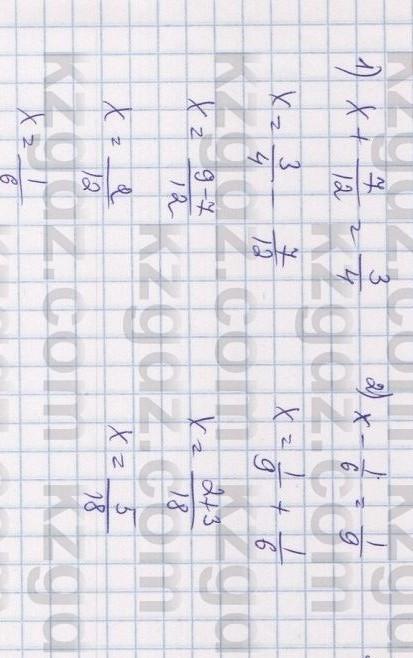 1) x + 7/12 = 3/4
x = 3/4 - 7/12
x = 9-7/12
x = 2/12
x = 1/6
2) x - 1/6 = 1/9
x = 1/9 + 1/6
x = 2+3/18
x = 5/18
kzgaz.com
kzgaz.com
kzgaz.com
kzgaz.com
kzgaz.com